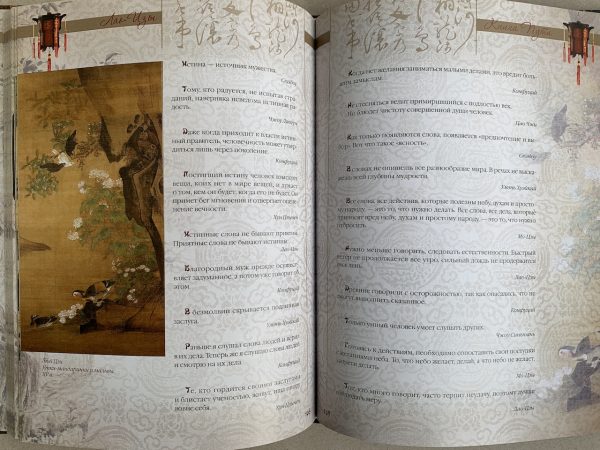 Лао-Цзы
Истина — источник мужества.
Сюнцзы
Тому, кто радуется, не испытав стра-
даний, наверняка неведома истинная ра-
дость.
Даже когда приходит к власти истин-
ный правитель, человечность может утвер-
диться лишь через поколение.
Конфуций
Постигший истину человек
вещи, коих нет в мире вещей, и думает
о том, кем он будет, когда его не будет. Он
примет без мгновения и
ние вечности.
Хун Цзычен
Истинные слова не бывают приятны.
Приятные слова не бывают истинны.
Лао-Цзы
Благородный муж прежде осущест-
вляет задуманное, а потом уже говорит об
этом.
Конфуций
В безмолвии скрывается подлинная
заслуга.
Раньше я слушал слова людей и верил
в их дела. Теперь же я слушаю слова людей
и смотрю на их дела.
Конфуций
Те, кто гордится своими заслугами
и блистает ученостью, живут,
вовне себя.
Хун Цзычен
Люй Цзи
Утки-мандаринки и мальвы.
XV в.
Книга Пути
Когда нет желания заниматься малыми делами, это вредит боль-
шим замыслам.
Конфуций
Не стесняться велит примирившийся с подлостью век.
Но блюдет чистоту совершенной души человек.
Как только появляются слова, появляется «предпочтение и вы-
бор». Вот что такое «ясность».
В словах не опишешь все разнообразие мира. В речах не выска-
жешь всей глубины мудрости.
Все слова, все действия, которые полезны небу, духам и просто-
му народу, — это то, что нужно делать. Все слова, все дела, которые
приносят вред небу, духам и простому народу, — это то, что нужно
отбросить.
Мо-Цзы
Нужно меньше говорить, следовать естественности. Быстрый
ветер не продолжается все утро, сильный дождь не продержится
весь день.
Лао-Цзы
Древние говорили с осторожностью, так как опасались, что не
смогут выполнить сказанное.
Конфуций
Талантливый человек умеет слушать других.
Готовясь к действиям, необходимо сопоставить свои поступки
с желаниями неба. То, что небо желает, делай, а что небо не желает,
не следует делать.
Мо-Цзы
Тот, кто много говорит, часто терпит неудачу, поэтому лучше
соблюдать меру.
Лао-Цзы